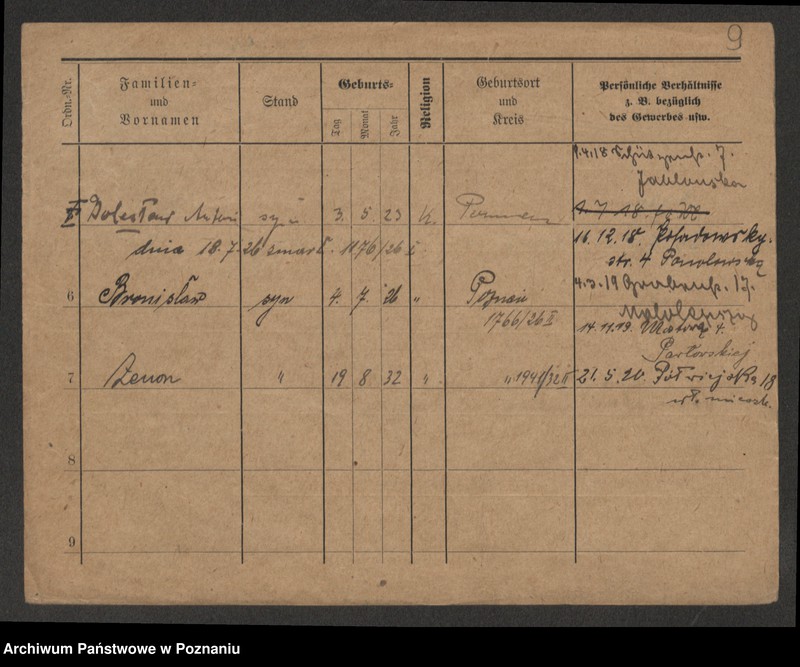 9
Ordn.-Nr.
Familien=
und
Vornamen
Stand
Geburts=
Tag
Monat
Jahr
Religion
Geburtsort
und
Kreis
Persönliche Verhältnisse
z. B. bezüglich
des Gewerbes usw.
1.4.18 7.
Jablonska
Bolesław Antoni syn 3. 5. 23 K.
16.12.18. Posadowsky.
dnia 18.7.26 zmarł. 1176/26
str. 4
6 Bronisław syn 4. 7. 26 " Poznań
4.3.19 Grabenstr. 17.
1766/26 II
14.11.19. 4.
7 Zenon " 19 8 32 " " 1941/32 II
21.5.20. Półwiejska 18
8
9
Archiwum Państwowe w Poznaniu